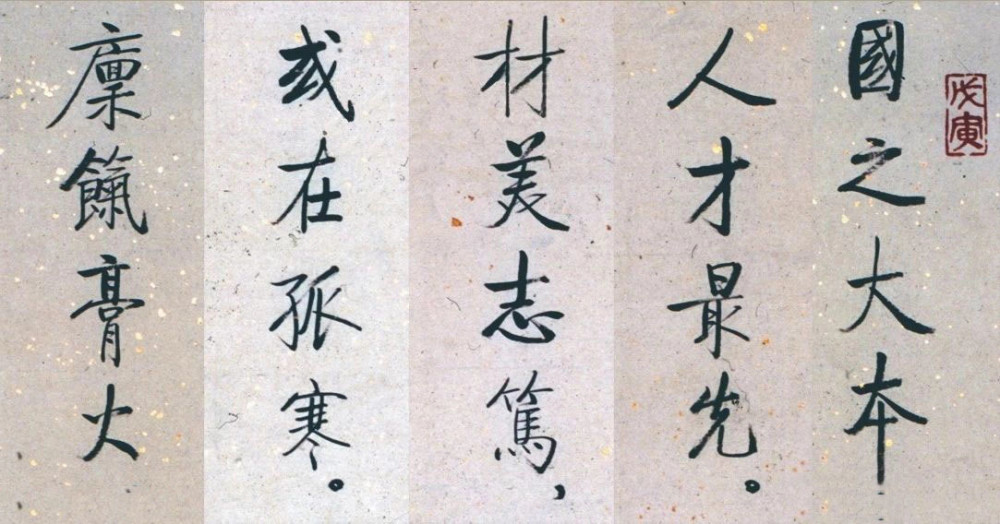 戊寅
國之大本
人才最先。
材美志篤，
或在孤寒。
廩餼膏火